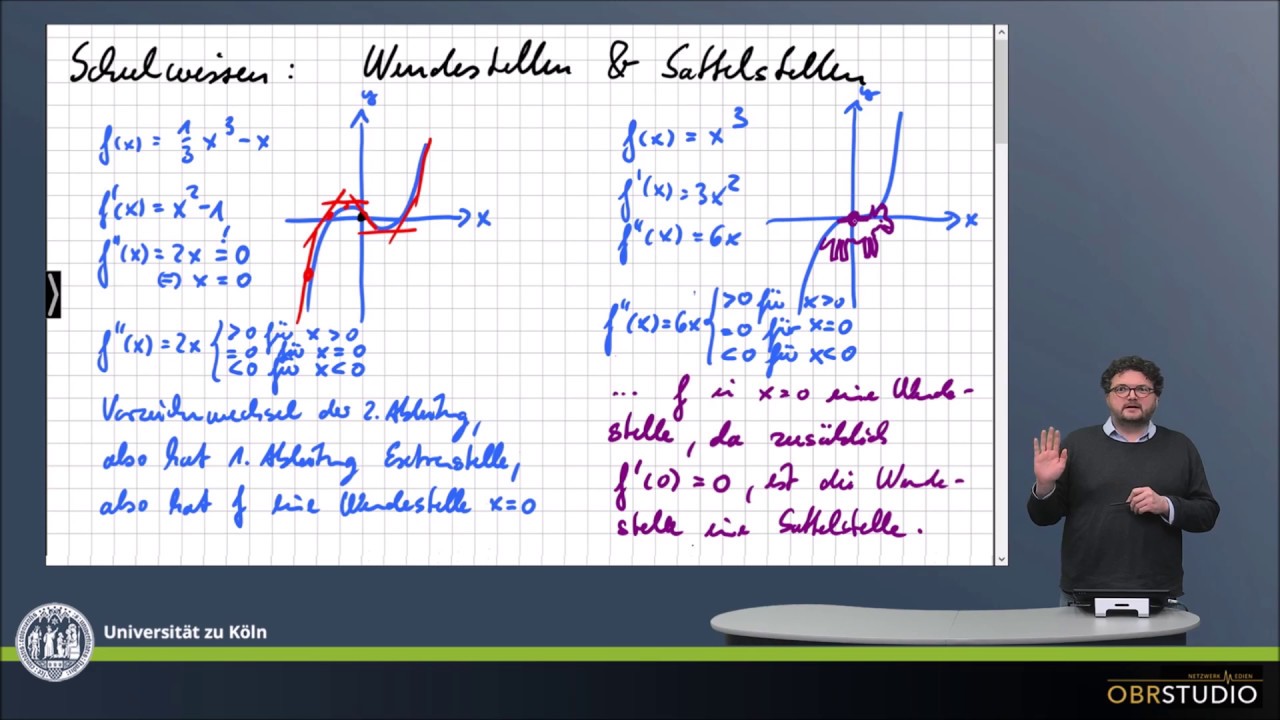 Schulwissen: Wendestellen & Sattelstellen
y
f(x) = 1/3 x³ - x
f'(x) = x² - 1
f''(x) = 2x =! 0
(=) x = 0
x
f''(x) = 2x { > 0 für x > 0
= 0 für x = 0
< 0 für x < 0
Vorzeichenwechsel der 2. Ableitung,
also hat 1. Ableitung Extremstelle,
also hat f eine Wendestelle x=0
y
f(x) = x³
f'(x) = 3x²
f''(x) = 6x
x
f''(x) = 6x { > 0 für x > 0
= 0 für x = 0
< 0 für x < 0
... f in x=0 eine Wende-
stelle, da zusätzlich
f'(0) = 0, ist die Wende-
stelle eine Sattelstelle.
Universität zu Köln
NETZWERK MEDIEN
OBRSTUDIO